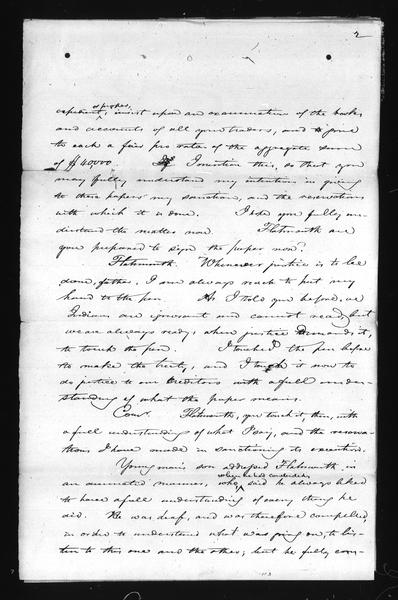 2
expedient, insist upon an examination of the books
and accounts of all your traders, and give
to each a fair pro rata of the aggregate sum
of $40000. I mention this, so that you
may fully understand my intention in giving
to these papers my sanction, and the reservations
with which it is done. I hope you fully un-
derstand the matter now. Flatmouth are
you prepared to sign the paper now?
Flatmouth. Whenever justice is to be
done, father, I am always ready to put my
hand to the pen. As I told you before, we
Indians are ignorant and cannot read, but
we are always ready, when justice demands it,
to touch the pen. I touched the pen before
to make the treaty, and I touch it now to
do justice to our creditors with a full under-
standing of what the paper means.
Comr. Flatmouth, you touch it, then, with
a full understanding of what I say, and the reserva-
tions I have made in sanctioning its execution.
Young man's son addressed Flatmouth in
when he had concluded,
an animated manner, who said he always liked
to have a full understanding of every thing he
did. He was deaf, and was therefore compelled,
in order to understand what was going on, to lis-
ten to this one and the other; but he fully com-